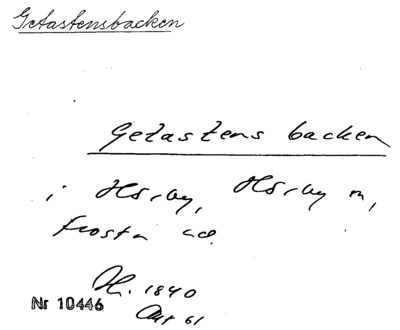 Getastensbacken
Getastens backen
i Hörby, Hörby sn,
Frosta hd.
H. 1840
Akt 61
Nr 10446